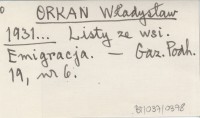 ORKAN Władysław
1931... Listy ze wsi.
Emigracja. — Gaz. Podh.
19, nr 6.
BJ/037/0398